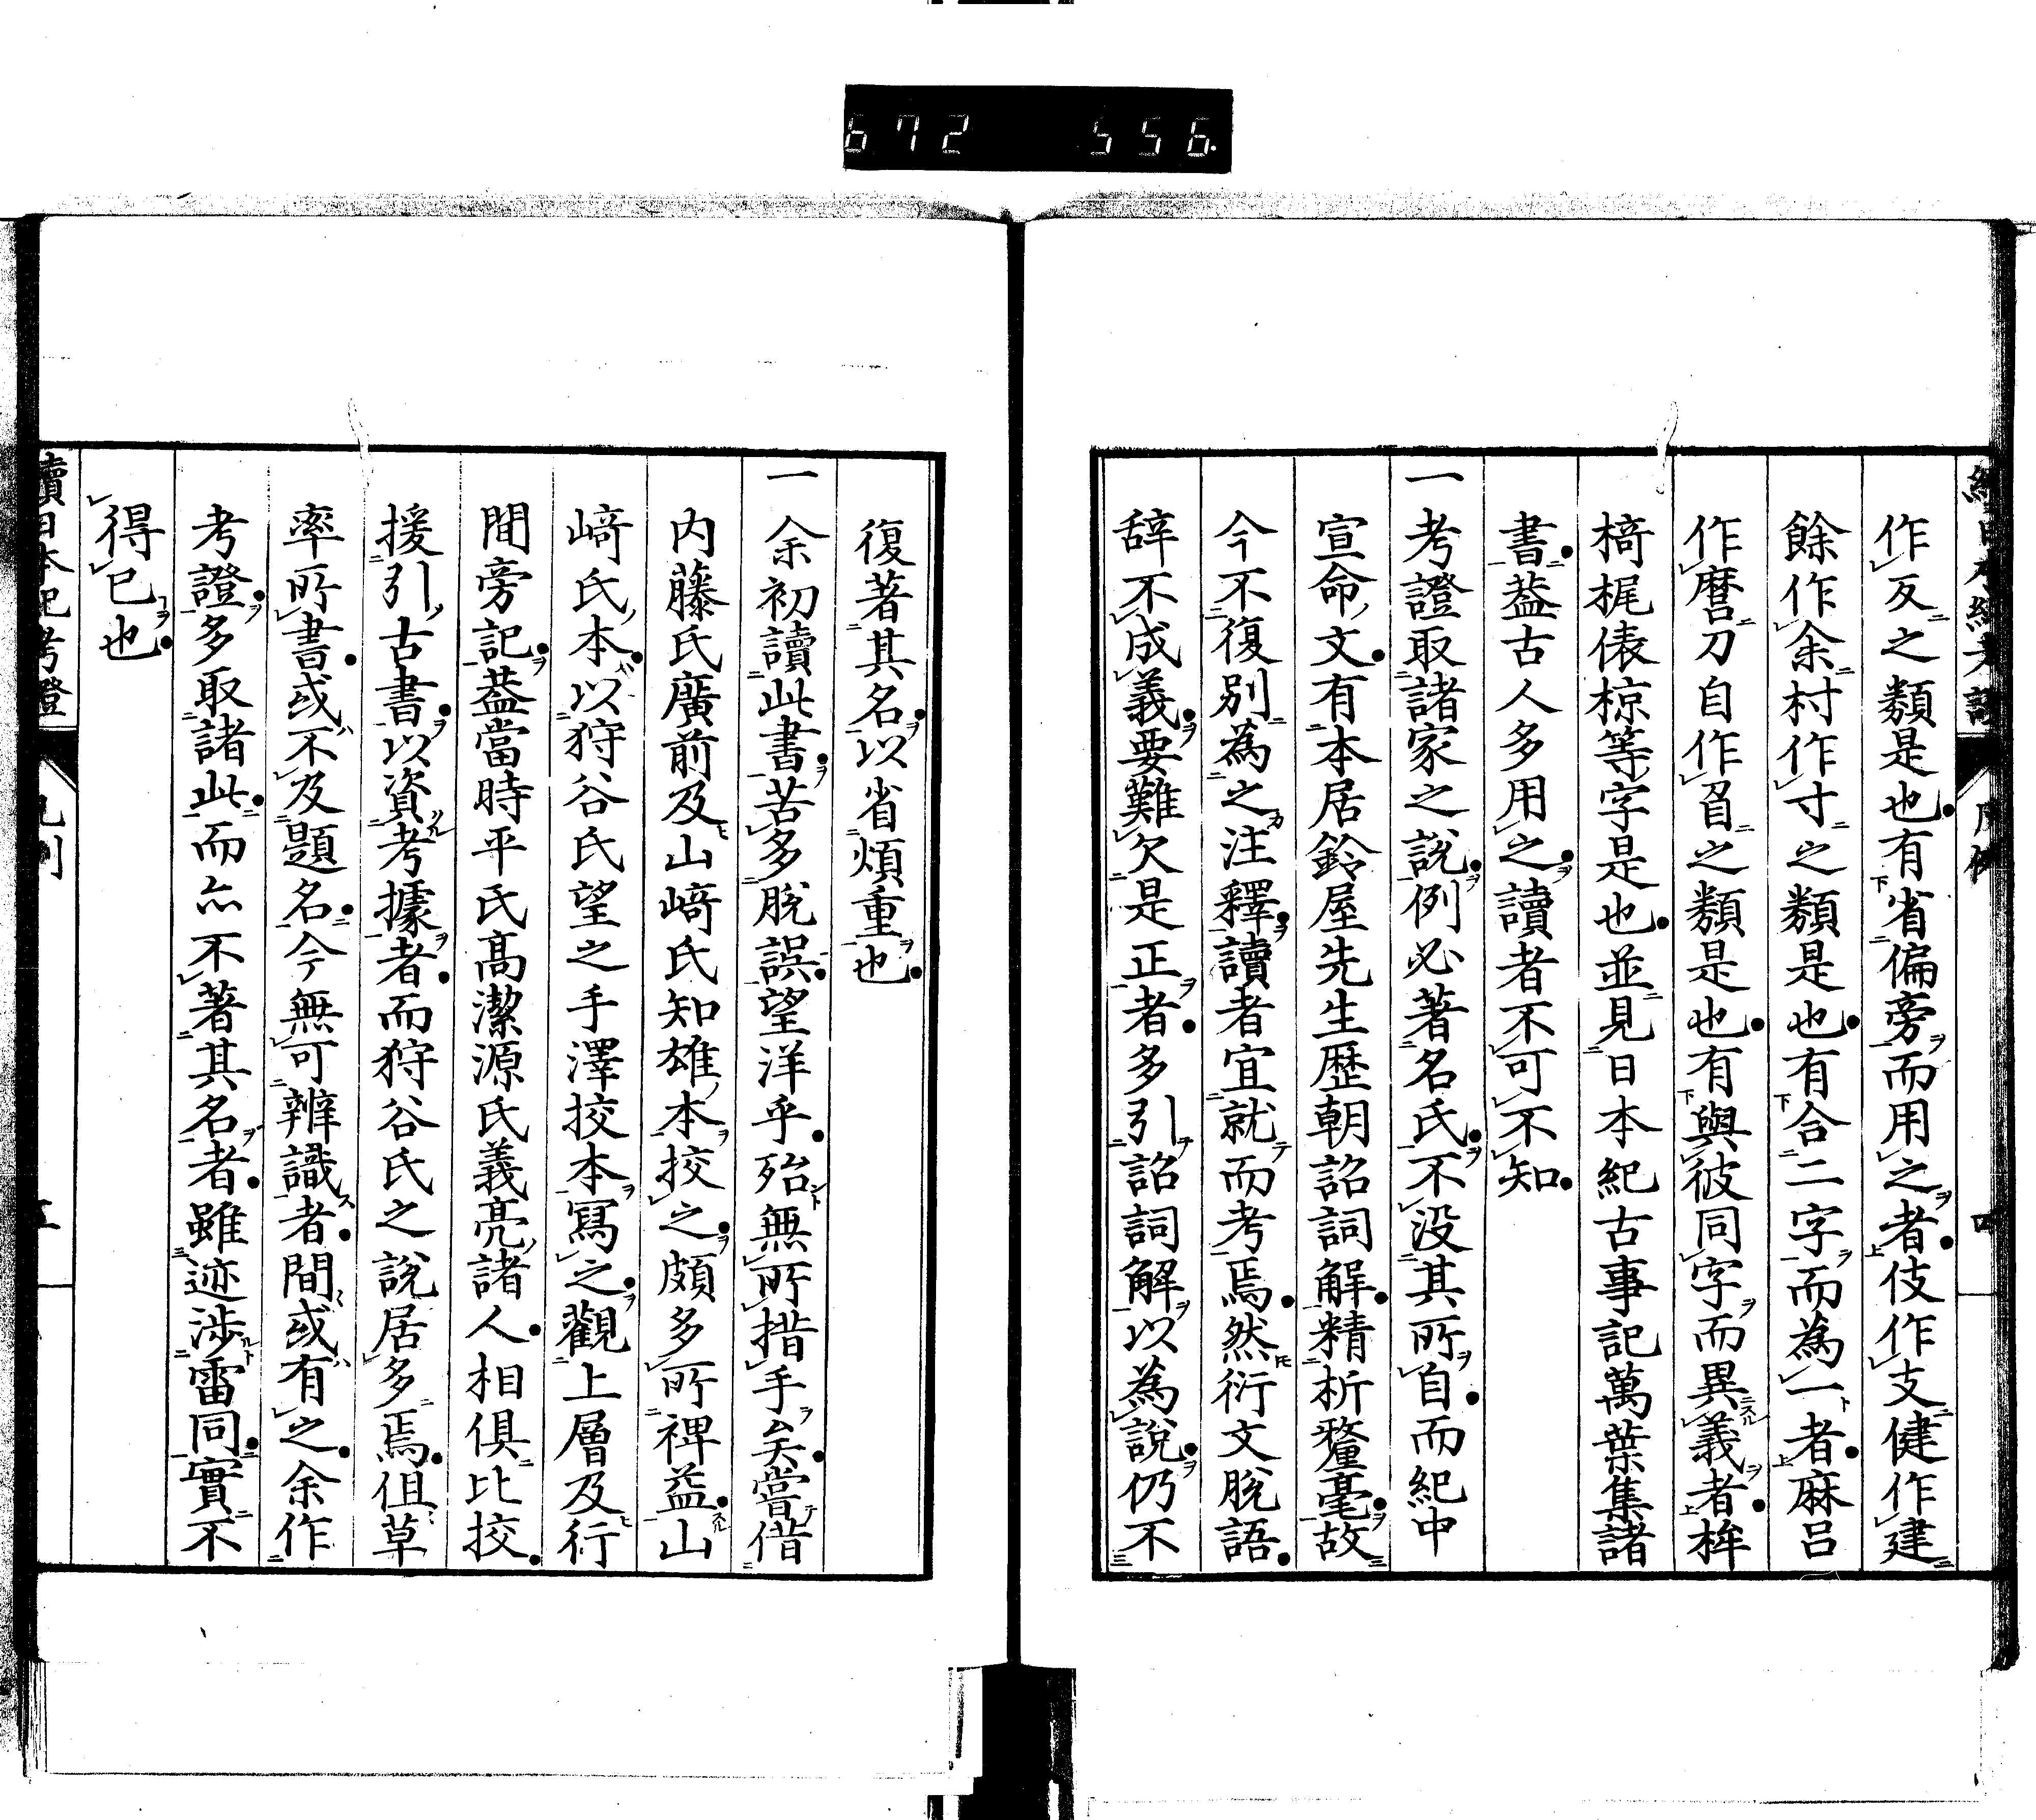 672 556
作反之類是也有省偏旁而用之者伎作支健作建
餘作余村作寸之類是也有合二字而為一者麻呂
作麿刀自作㞍之類是也有與彼同字而異義者桙
椅梶俵椋等字是也並見日本紀古事記萬葉集諸
書葢古人多用之讀者不可不知
一考證取諸家之說例必著名氏不没其所自而紀中
宣命文有本居鈴屋先生歷朝詔詞解精析釐毫故
今不復別為之注釋讀者宜就而考焉然衍文脫語
辞不成義要難欠是正者多引詔詞解以為說仍不
復著其名以省煩重也
一余初讀此書苦多脫誤望洋乎殆無所措手矣嘗借
内藤氏廣前及山﨑氏知雄本挍之頗多所裨益山
﨑氏本以狩谷氏望之手澤挍本寫之觀上層及行
間旁記葢當時平氏高潔源氏義亮諸人相俱比挍
援引古書以資考據者而狩谷氏之說居多焉但草
率所書或不及題名今無可辨識者間或有之余作
考證多取諸此而亦不著其名者雖迹涉雷同實不
得已也
續日本紀考證 凡例